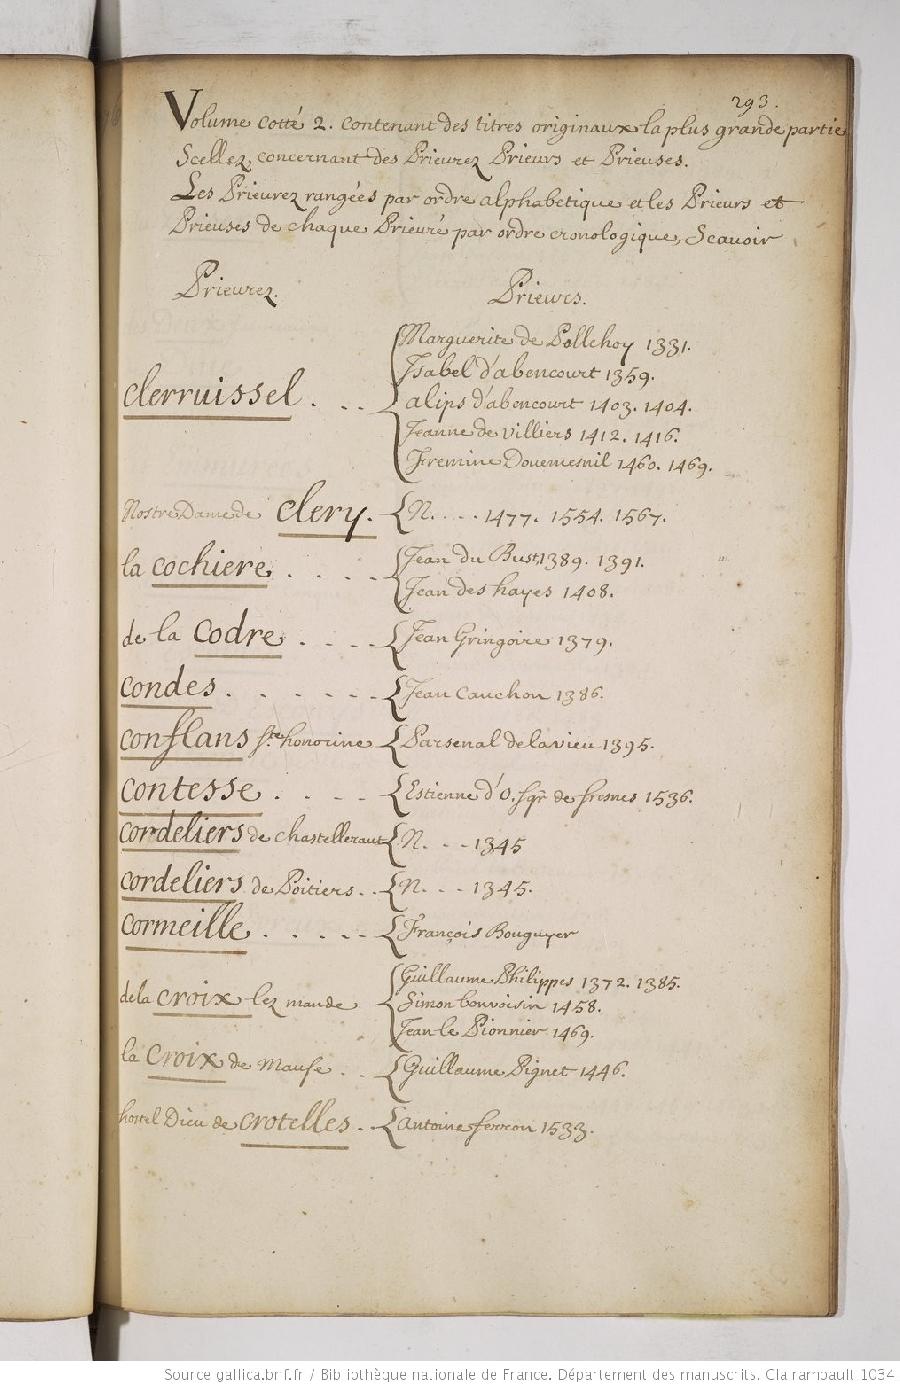 293.
Volume cotté 2. contenant des titres originaux la plus grande partie
Scellez concernant des Prieurez Prieurs et Prieuses.
Les Prieurez rangées par ordre alphabetique et les Prieurs et
Prieuses de chaque Prieuré par ordre cronologique, Scavoir
Prieurez. Prieurs.
Marguerite de Pollehoy 1331.
Isabel d'abencourt 1359.
clerruissel . . . alips d'abencourt 1403. 1404.
Jeanne de Villiers 1412. 1416.
Fremine Douemesnil 1460. 1469.
Nostre Dame de clery. N. . . . . 1477. 1554. 1567.
la cochiere . . . . Jean du Bust 1389. 1391.
Jean des hayes 1408.
de la codre . . . . Jean Gringoire 1379.
condes . . . . . . Jean Cauchon 1386.
conflans ste honorine Parsenal de la vieu 1395.
contesse . . . . Estienne d'O. sgr de fresnes 1536.
cordeliers de chastelleraut N. . . . 1345
cordeliers de Poitiers . . N. . . . 1345.
cormeille . . . . . François Bouguyer
Guillaume Philippes 1372. 1385.
de la croix lez maude Simon bonvoisin 1458.
Jean le Pionnier 1469.
la croix de Maufe . . Guillaume Pignet 1446.
hostel Dieu de crotelles . antoine ferron 1533.
Source gallica.bnf.fr / Bibliothèque nationale de France. Département des manuscrits. Clairambault 1034